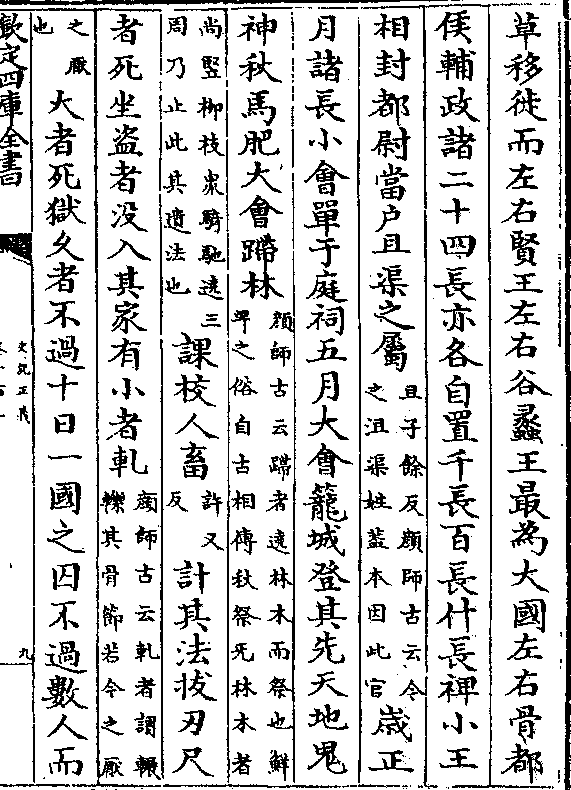 草移徙而左右賢王左右谷蠡王最為大國左右骨都
侯輔政諸二十四長亦各自置千長百長什長裨小王
相封都尉當户且渠之屬
且子餘反顔師古云今
之沮渠姓葢本因此官
歳正
月諸長小會單于庭祠五月大會籠城登其先天地鬼
神秋馬肥大會蹛林
顔師古云蹛者遶林木而祭也鮮
卑之俗自古相傳秋祭无林木者
尚竪柳枝衆騎馳遶三
周乃止此其遺法也
課校人畜
許又
反
計其法拔刃尺
者死坐盗者没入其家有小者軋
顔師古云軋者謂輾
轢其骨節若今之厭
之厥
也
大者死獄久者不過十日一國之囚不過數人而
欽定四庫全書
史記正義
九